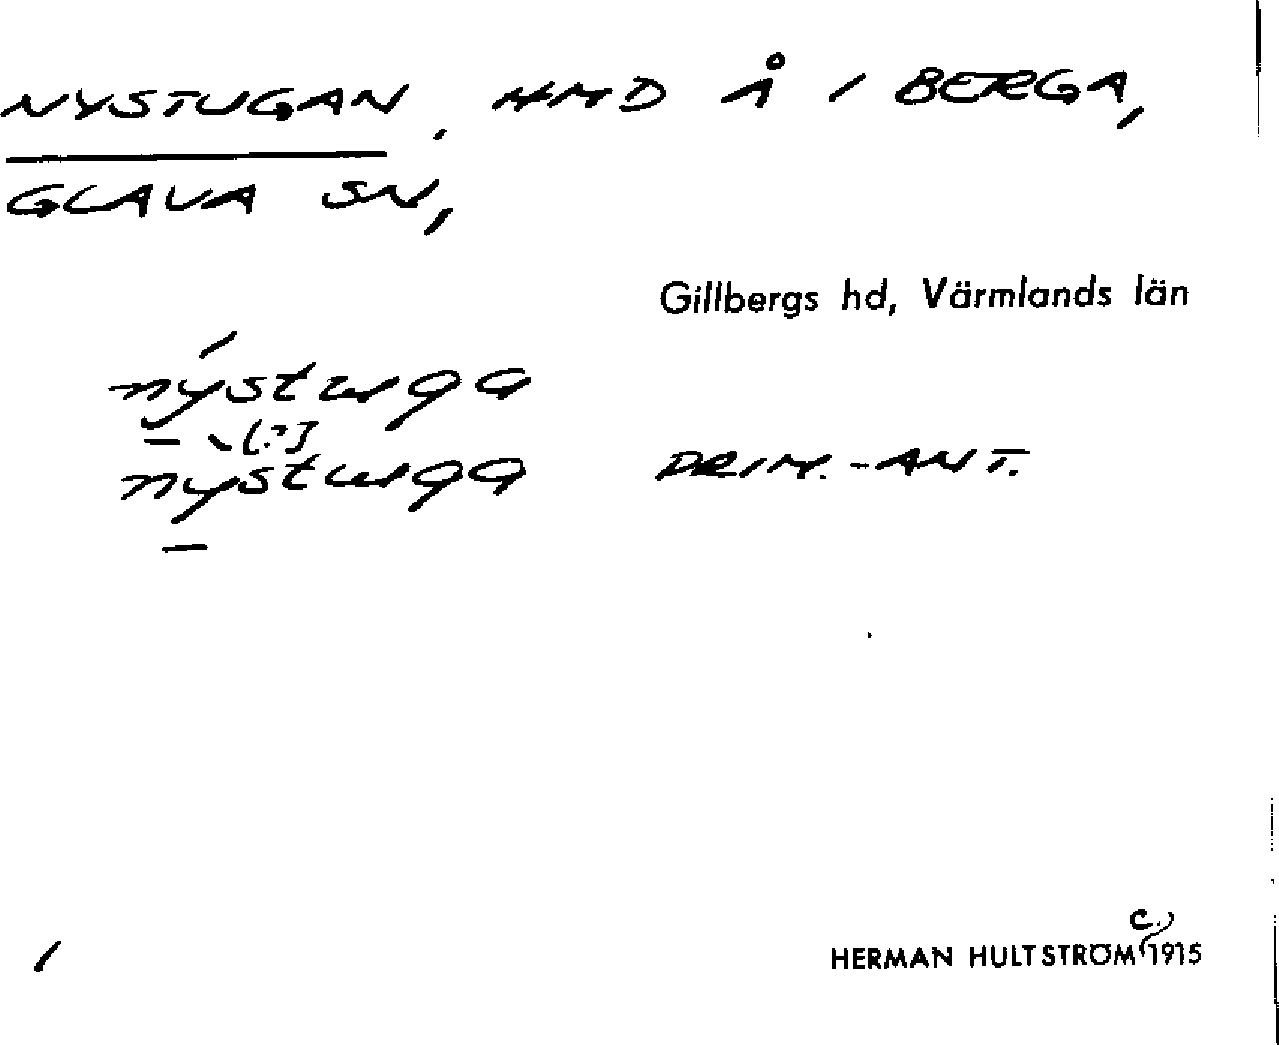 NYSTUGAN, HMD Å I BERGA,
GLAVA SN,
Gillbergs hd, Värmlands län
nýstuga
[?]
nystuga PRIM.-ANT.
HERMAN HULTSTRÖM c. 1915
1